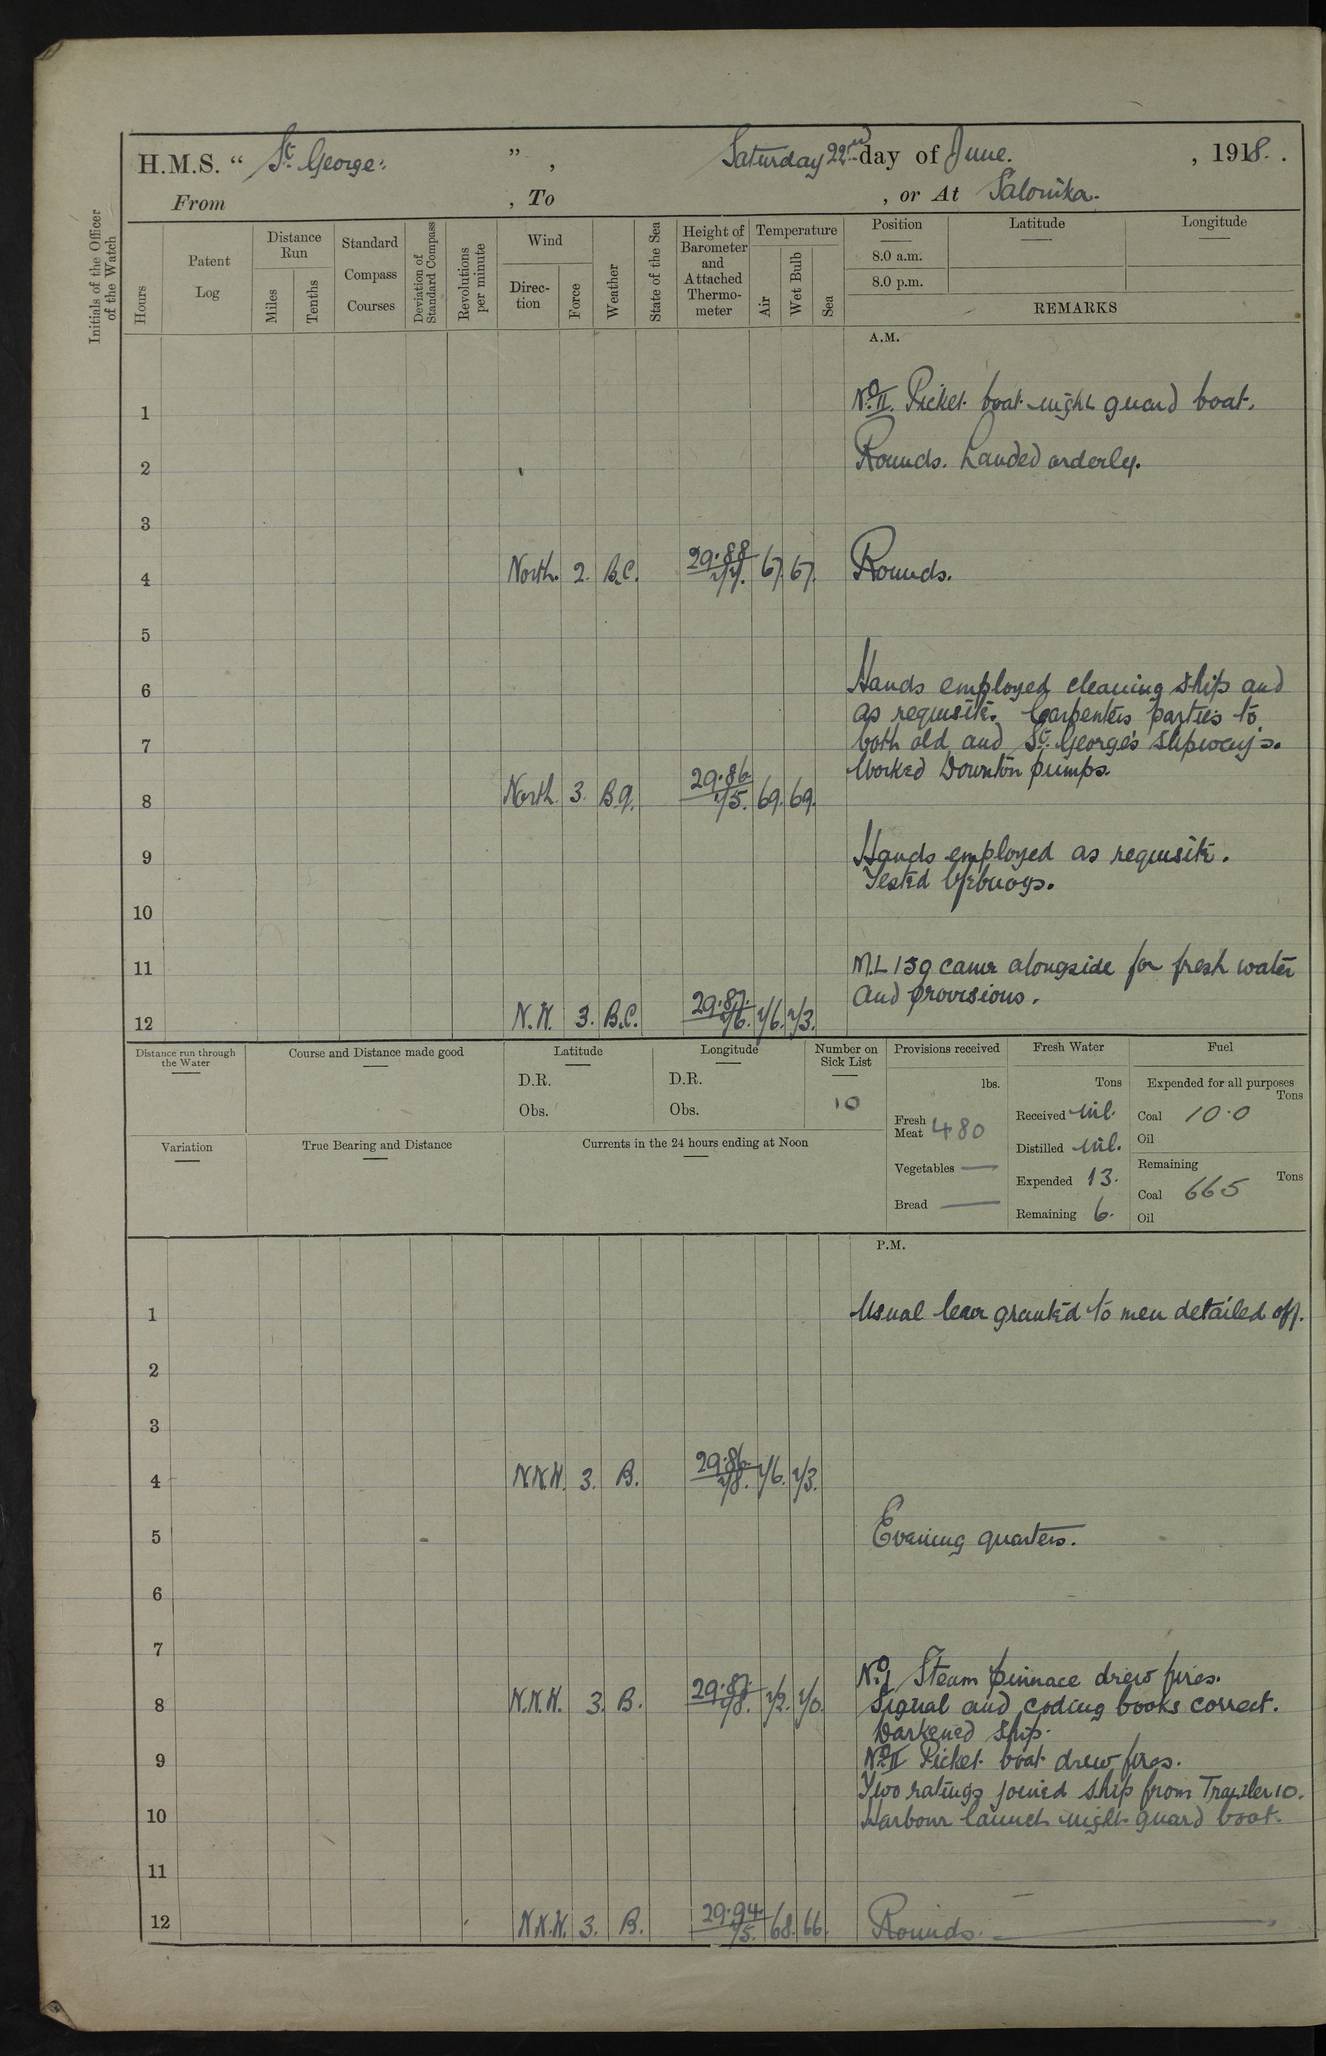 H.M.S. “ St. George: ” , Saturday 22nd day of June. , 1918. .
From , To , or At Salonika.
Initials of the Officer of the Watch
Hours
Patent Log
Distance Run
Miles
Tenths
Standard Compass Courses
Deviation of Standard Compass
Revolutions per minute
Wind
Direction
Force
Weather
State of the Sea
Height of Barometer and Attached Thermometer
Temperature
Air
Wet Bulb
Sea
Position
8.0 a.m.
8.0 p.m.
Latitude
Longitude
REMARKS
A.M.
1 No. II. Picket boat night guard boat.
2 Rounds. Landed orderly.
3
4 North. 2. B.C. 29.88 77. 67. 67. Rounds.
5
6 Hands employed cleaning ship and
as requisite. Carpenters parties to
7 both old and St. George's slipways.
Worked Downton pumps
8 North 3. B.q. 29.86 75. 69. 69.
9 Hands employed as requisite.
Tested lifebuoys.
10
11 M.L 139 came alongside for fresh water
and provisions.
12 N.W. 3. B.C. 29.87. 76. 76. 73.
Distance run through the Water
Course and Distance made good
Latitude
D.R.
Obs.
Longitude
D.R.
Obs.
Number on Sick List
10
Variation
True Bearing and Distance
Currents in the 24 hours ending at Noon
Provisions received
lbs.
Fresh Meat 480
Vegetables —
Bread —
Fresh Water
Tons
Received nil.
Distilled nil.
Expended 13.
Remaining 6.
Fuel
Expended for all purposes
Tons
Coal 10.0
Oil
Remaining
Tons
Coal 665
Oil
P.M.
1 Usual leave granted to men detailed off.
2
3
4 N.N.W. 3. B. 29.86. 78. 76. 73.
5 Evening quarters.
6
7
No. 1 Steam pinnace drew fires.
8 N.N.W. 3. B. 29.87. 78. 72. 70. Signal and coding books correct.
Darkened ship.
9 No. II Picket boat drew fires.
Two ratings joined ship from Trawler 10.
10 Harbour launch night guard boat.
11
12 N.N.W. 3. B. 29.94. 75. 68. 66. Rounds.